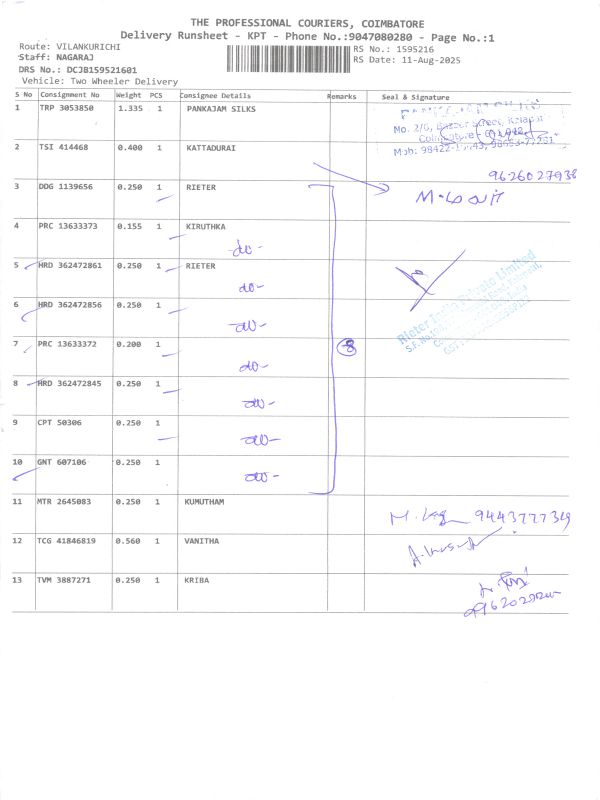 THE PROFESSIONAL COURIERS, COIMBATORE
Delivery Runsheet - KPT - Phone No.:9047080280 - Page No.:1
Route: VILANKURICHI RS No.: 1595216
Staff: NAGARAJ RS Date: 11-Aug-2025
DRS No.: DCJB159521601
Vehicle: Two Wheeler Delivery
S No Consignment No Weight PCS Consignee Details Remarks Seal & Signature
1 TRP 3053850 1.335 1 PANKAJAM SILKS
2 TSI 414468 0.400 1 KATTADURAI
9626027938
3 DDG 1139656 0.250 1 RIETER
4 PRC 13633373 0.155 1 KIRUTHKA
do-
5 HRD 362472861 0.250 1 RIETER
do-
6 HRD 362472856 0.250 1
do-
7 PRC 13633372 0.200 1 8
do-
8 HRD 362472845 0.250 1
do-
9 CPT 50306 0.250 1
do-
10 GNT 607106 0.250 1
do-
11 MTR 2645083 0.250 1 KUMUTHAM
12 TCG 41846819 0.560 1 VANITHA
13 TVM 3887271 0.250 1 KRIBA
Rieter India Private Limited